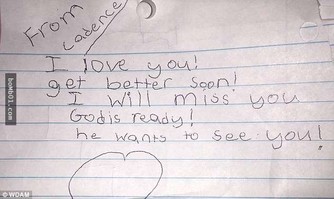 From
Cadence
I love you!
get better soon!
I will miss you
God is ready!
he wants to see you!
bomb01.com
© WDAM